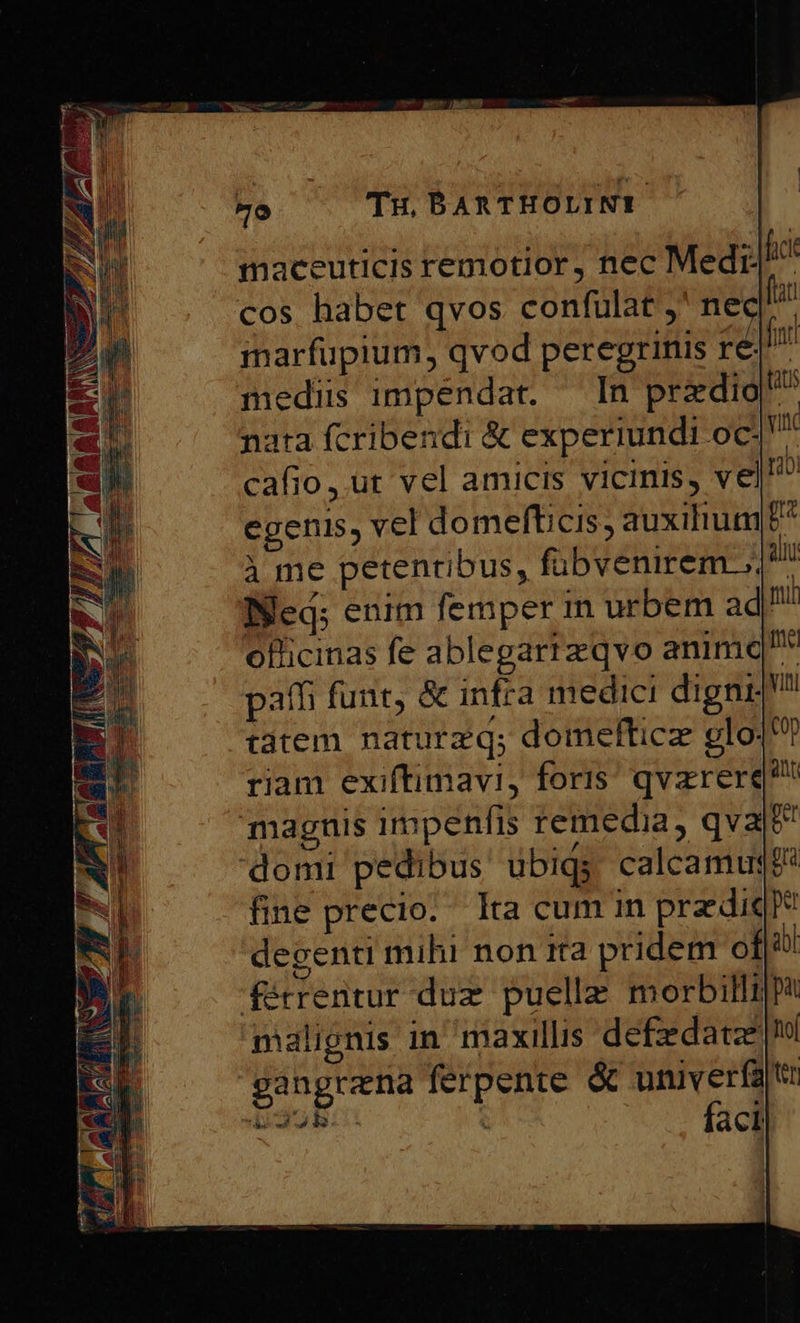 70 TH, BARTHOLINI
maceuticis remotior, nec Medi-
cos habet qvos conſulat, nec
marſupium, qvod peregrinis re-
mediis impendat. In prædio
nata ſcribendi & experiundi oc-
caſio, ut vel amicis vicinis, vel
egenis, vel domeſticis, auxilium
à me petentibus, ſubvenirem.
Neq; enim ſemper in urbem ad
officinas ſe ablegari æqvo animo
paſſi ſunt, & infra medici digni-
tatem naturæq; domeſticæ glo-
riam exiſtimavi, foris qværere
magnis impenſis remedia, qvæ
domi pedibus ubiq; calcamus
ſine precio. Ita cum in prædio
degenti mihi non ita pridem of-
ferrentur duæ puellæ morbilli
malignis in maxillis defædatæ
gangræna ſerpente & univerſa
faci